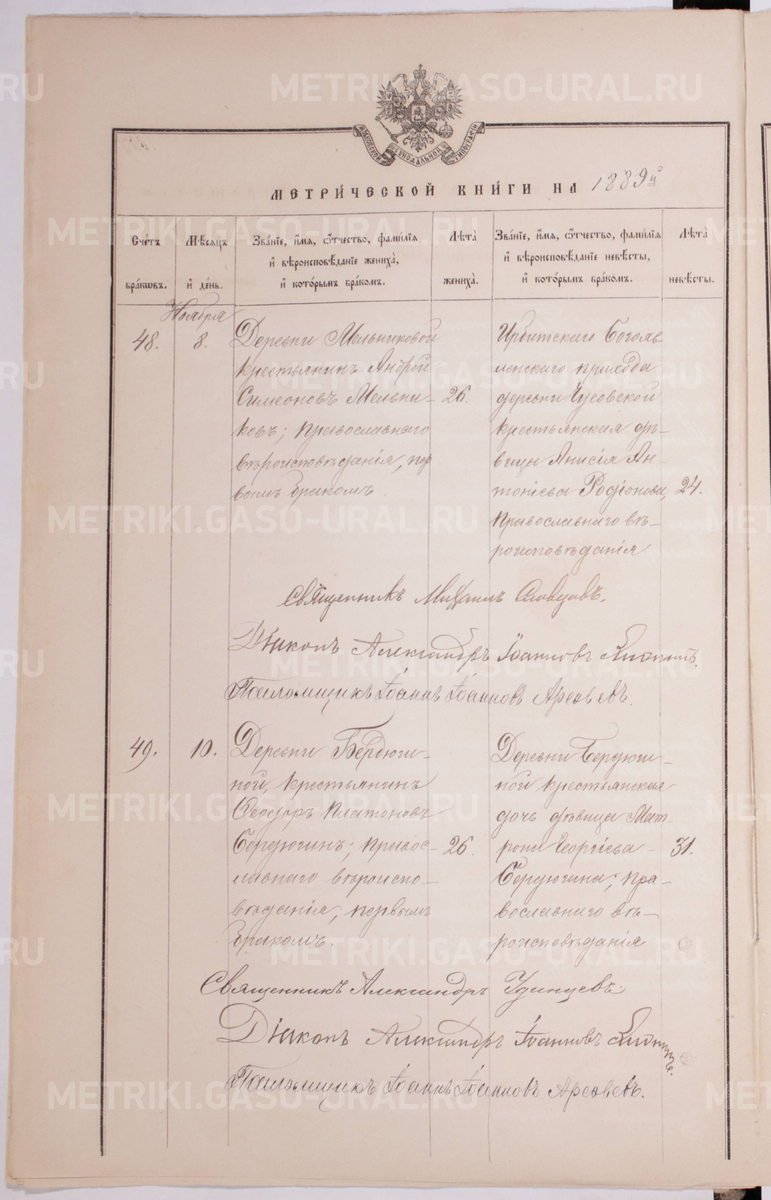 METRIKI.GASO-URAL.RU
МЕТРИ́ЧЕСКОЙ КНИ́ГИ НА 1889й
Сче́тъ бра́ковъ.
Мѣ́сяцъ и҆ де́нь.
Зва́нїе, и҆́мя, ѻ҆́тчество, фами́лїа и҆ вѣроисповѣ́данїе жениха̀, и҆ кото́рымъ бра́комъ.
Лѣ́та жениха̀.
Зва́нїе, и҆́мя, ѻ҆́тчество, фами́лїа и҆ вѣроисповѣ́данїе невѣ́сты, и҆ кото́рымъ бра́комъ.
Лѣ́та невѣ́сты.
Ноября
48.
8.
Деревни Мельниковой
крестьянинъ Андрей
Симеоновъ Мельни-
ковъ; православнаго
вѣроисповѣданія, пер
вымъ бракомъ.
26.
Ирбитскаго Богояв
ленскаго прихода
деревни Чусовской
крестьянская дѣ-
вица Анисія Ан-
тоніева Родіонова,
православнаго вѣ-
роисповѣданія
24.
Священникъ Михаилъ Словцовъ.
Діаконъ Александръ Іоанновъ
Псаломщикъ Іоаннъ Іоанновъ Арефьевъ.
49.
10.
Деревни Бердюги-
ной, крестьянинъ
Ѳеодоръ Платоновъ
Бердюгинъ; правос-
лавнаго вѣроиспо-
вѣданія, первымъ
бракомъ.
26.
Деревни Бердюги-
ной крестьянская
дочь дѣвица Мат
рона Георгіева
Бердюгина; пра-
вославнаго вѣ-
роисповѣданія
31.
Священникъ Александръ Удинцевъ.
Діаконъ Александръ Іоанновъ
Псаломщикъ Іоаннъ Іоанновъ Арефьевъ.